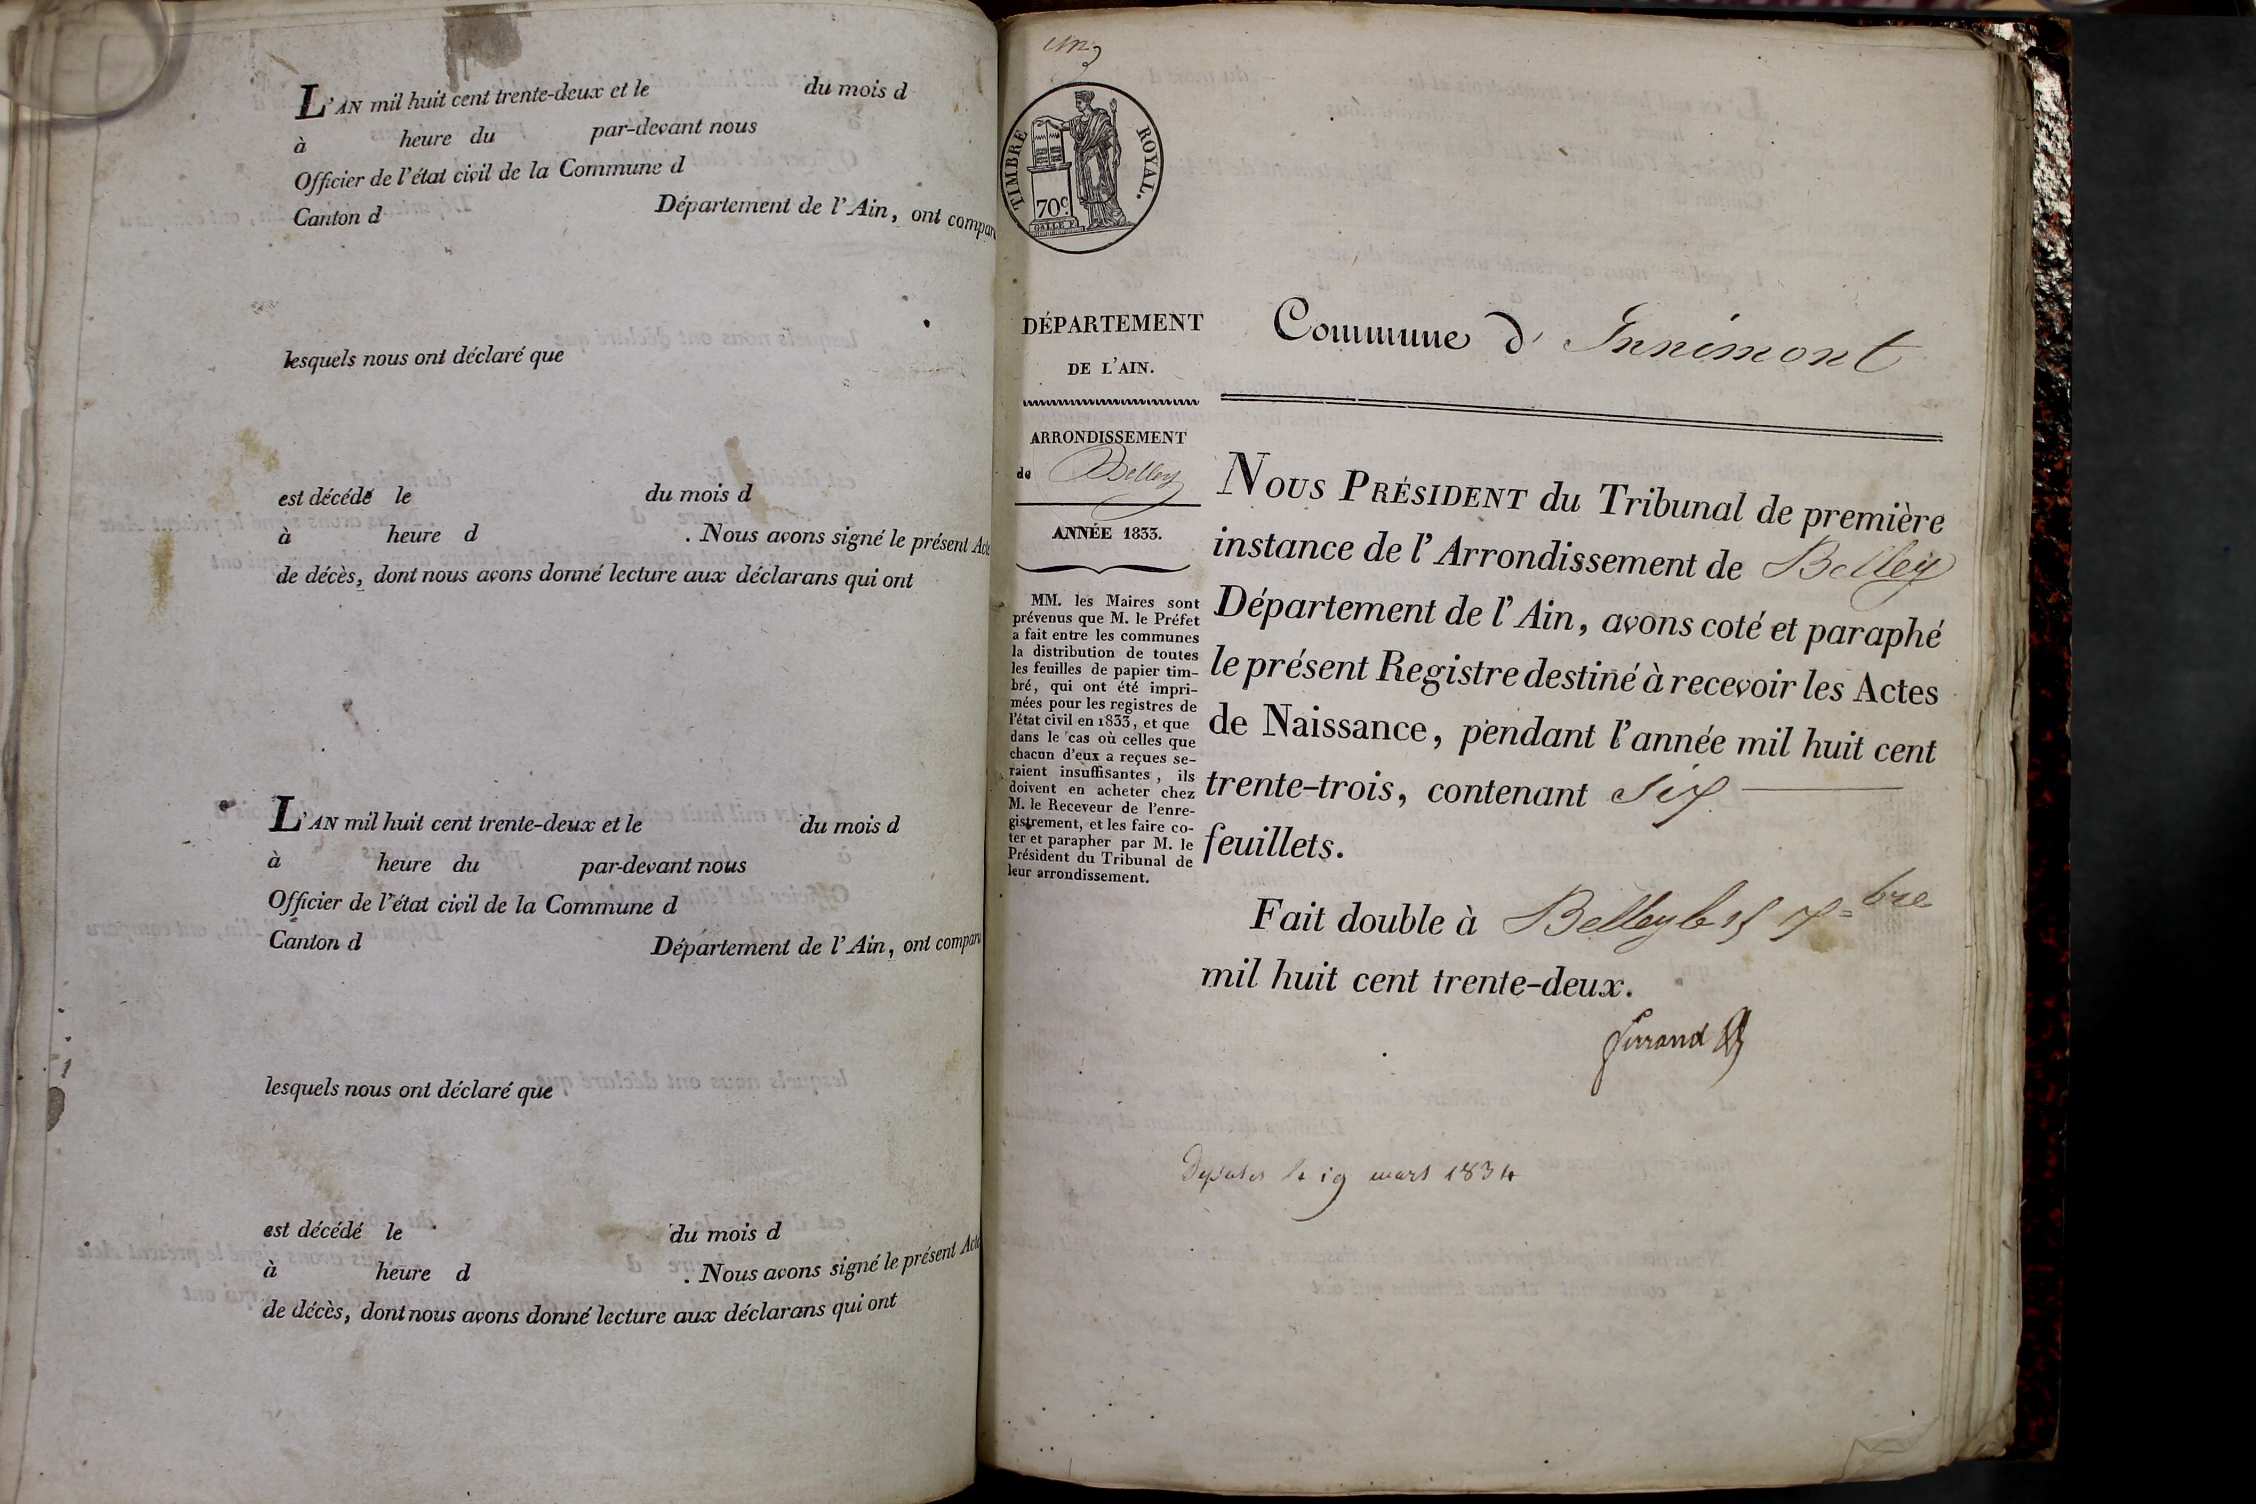 L'AN mil huit cent trente-deux et le du mois d
à heure du par-devant nous
Officier de l'état civil de la Commune d
Canton d Département de l'Ain, ont compar
lesquels nous ont déclaré que
est décédé le du mois d
à heure d . Nous avons signé le présent Acte
de décès, dont nous avons donné lecture aux déclarans qui ont
L'AN mil huit cent trente-deux et le du mois d
à heure du par-devant nous
Officier de l'état civil de la Commune d
Canton d Département de l'Ain, ont comparu
lesquels nous ont déclaré que
est décédé le du mois d
à heure d . Nous avons signé le présent Acte
de décès, dont nous avons donné lecture aux déclarans qui ont
un
TIMBRE ROYAL.
70c.
DÉPARTEMENT
DE L'AIN.
ARRONDISSEMENT
de Belley
ANNÉE 1833.
MM. les Maires sont
prévenus que M. le Préfet
a fait entre les communes
la distribution de toutes
les feuilles de papier tim-
bré, qui ont été impri-
mées pour les registres de
l'état civil en 1833, et que
dans le cas où celles que
chacun d'eux a reçues se-
raient insuffisantes, ils
doivent en acheter chez
M. le Receveur de l'enre-
gistrement, et les faire co-
ter et parapher par M. le
Président du Tribunal de
leur arrondissement.
Commune d'Innimont
NOUS PRÉSIDENT du Tribunal de première
instance de l'Arrondissement de Belley
Département de l'Ain, avons coté et paraphé
le présent Registre destiné à recevoir les Actes
de Naissance, pendant l'année mil huit cent
trente-trois, contenant six
feuillets.
Fait double à Belley le 15 bre
mil huit cent trente-deux.
le 19 mars 1834